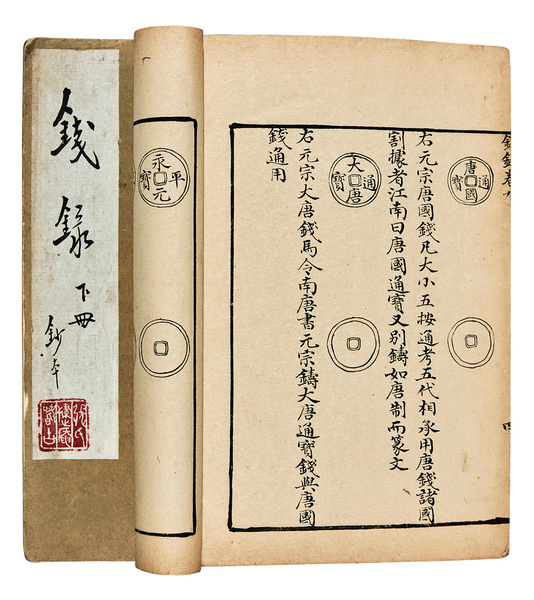 錢录
下冊
鈔本
唐國通寶
右元宗唐國錢凡大小五按通考五代相承用唐錢諸國
割據者江南曰唐國通寶又別鑄如唐制而篆文
大唐通寶
右元宗大唐錢馬令南唐書元宗鑄大唐通寶錢與唐國
錢通用
永平元寶